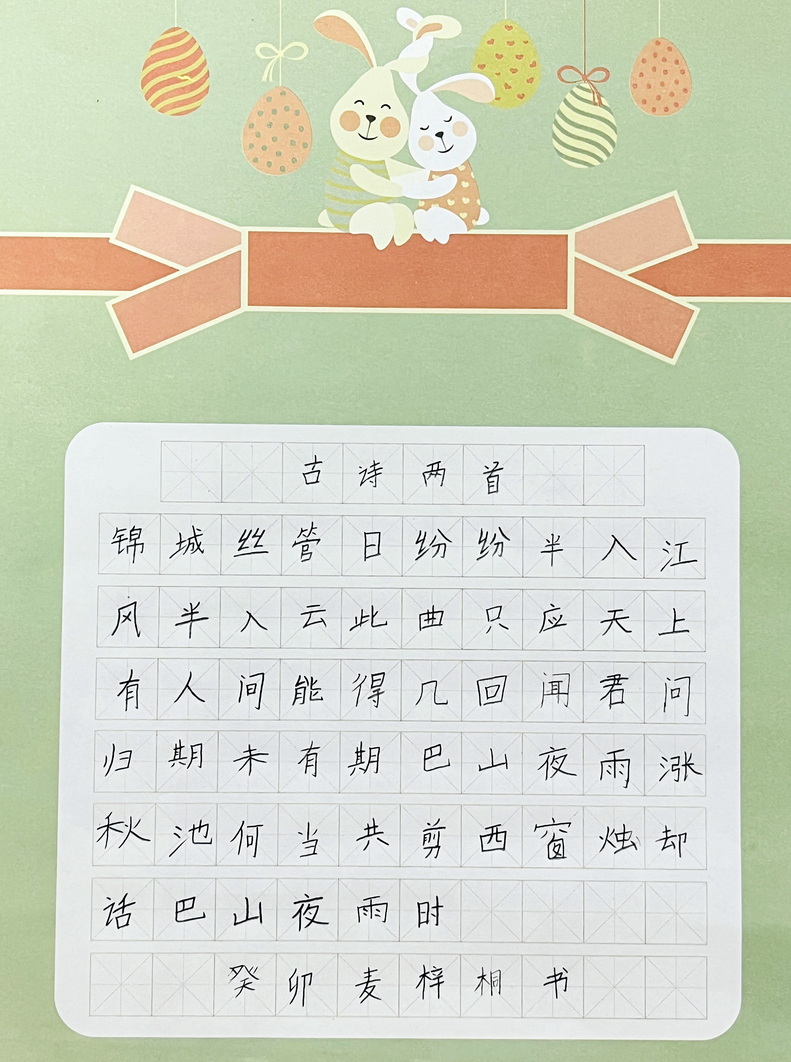 古诗两首
锦城丝管日纷纷半入江
风半入云此曲只应天上
有人间能得几回闻君问
归期未有期巴山夜雨涨
秋池何当共剪西窗烛却
话巴山夜雨时
癸卯麦梓桐书